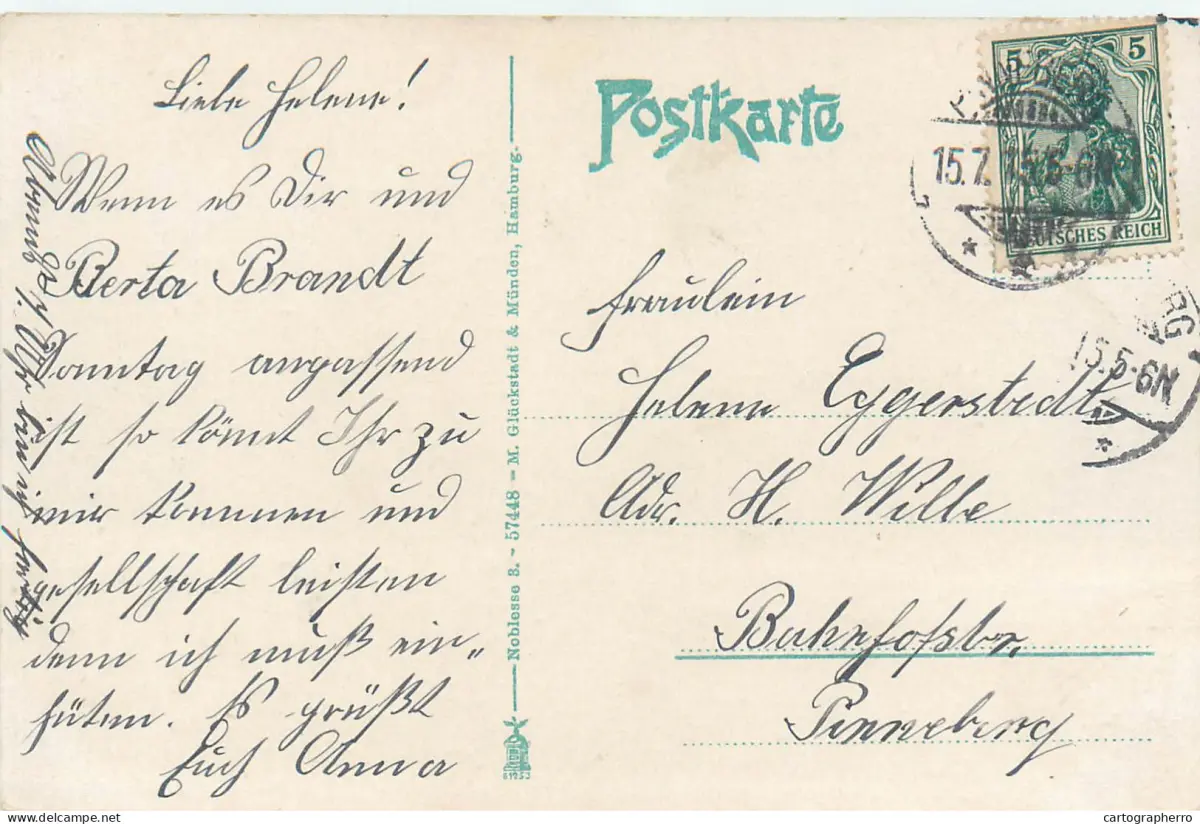 Liebe Helene!
Wenn es Dir und
Berta Brandt
Sonntag angpassend
ist so könnt Ihr zu
mir kommen und
gesellschaft leisten
denn ich muß ein„
hüten. Es grüßt
Euch Anna
Abends 7. Uhr bin ich fertig
Noblesse 3. - 57448 - M. Glückstadt & Münden, Hamburg.
61953
Postkarte
5 5
DEUTSCHES REICH
15.7. 15.5-6N
RG
15.5-6N
Fräulein
Helene Eggerstedt
Adr. H. Wille
Bahnhofstr.
Pinneberg
www.delcampe.net
cartographerro